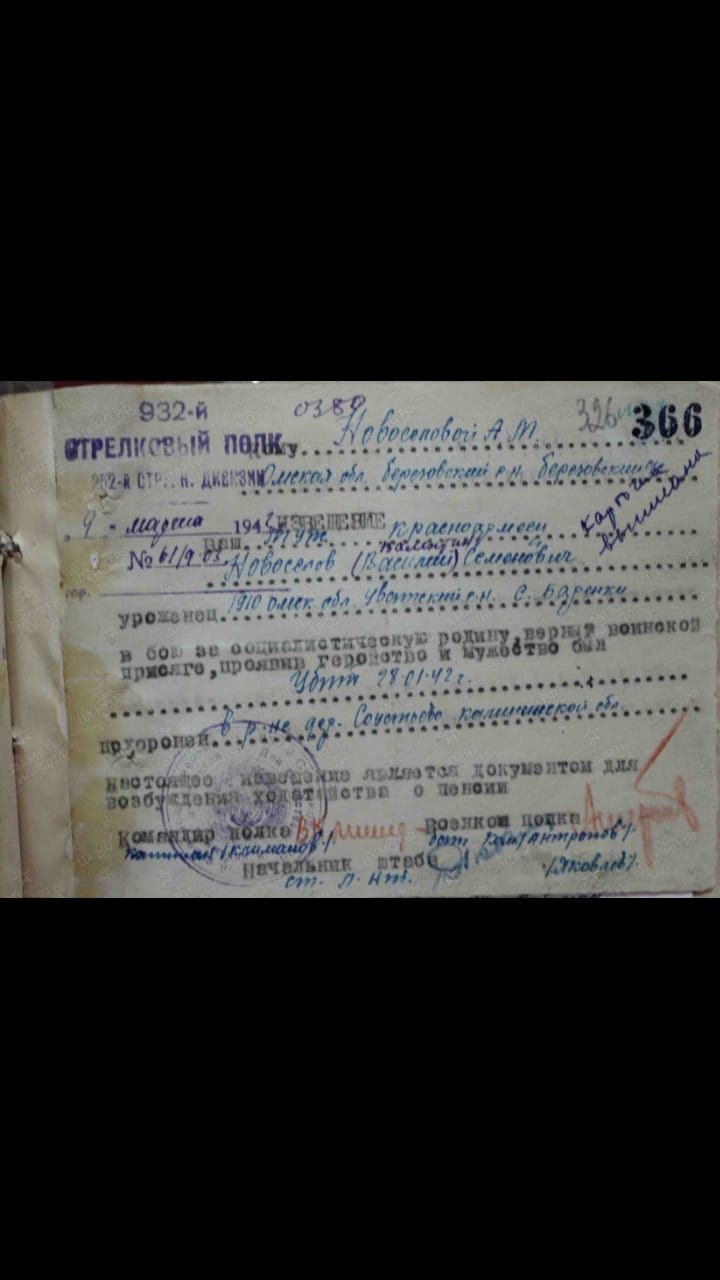 932-й
0380
326
366
СТРЕЛКОВЫЙ ПОЛК
Кому Новоселовой А.М.
252-й СТРЕЛ К. ДИВИЗИИ
Омская обл. березовский р.н. березовский
карточка выписана
"9" марта 1942
ИЗВЕЩЕНИЕ
Ваш муж красноармеец
№ 61/9.03
Валентин
Новоселов (Василий) Семенович
гор.
урожанец 1910 омск. обл. Уватский р.н. с.
в бою за социалистическую родину, верный воинской
присяге, проявив геройство и мужество был
Убит 28.01.42 г.
похоронен в р-не дер. Калининской обл.
настоящее извещение является документом для
возбуждения ходатайства о пенсии
Командир полка Военком полка
капитан /Кайманов/ бат. ком /Антропов/.
Начальник штаба
ст. л-нт. /Яковлев/.